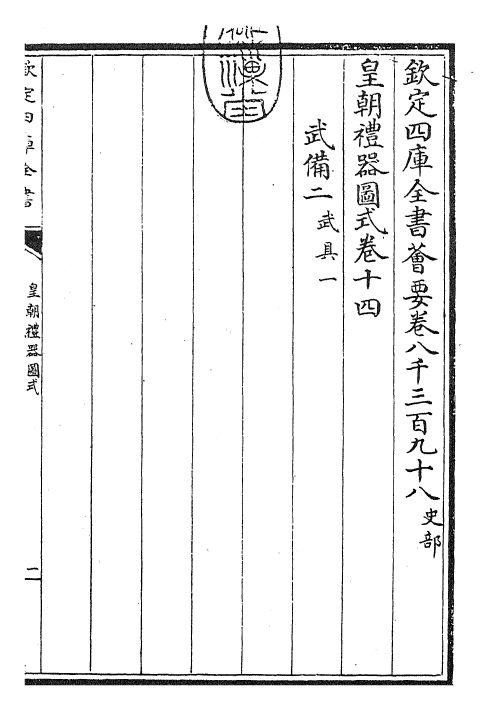 欽定四庫全書薈要卷八千三百九十八 史部
皇朝禮器圖式卷十四
武備二 武具一
欽定四庫全書
皇朝禮器圖式